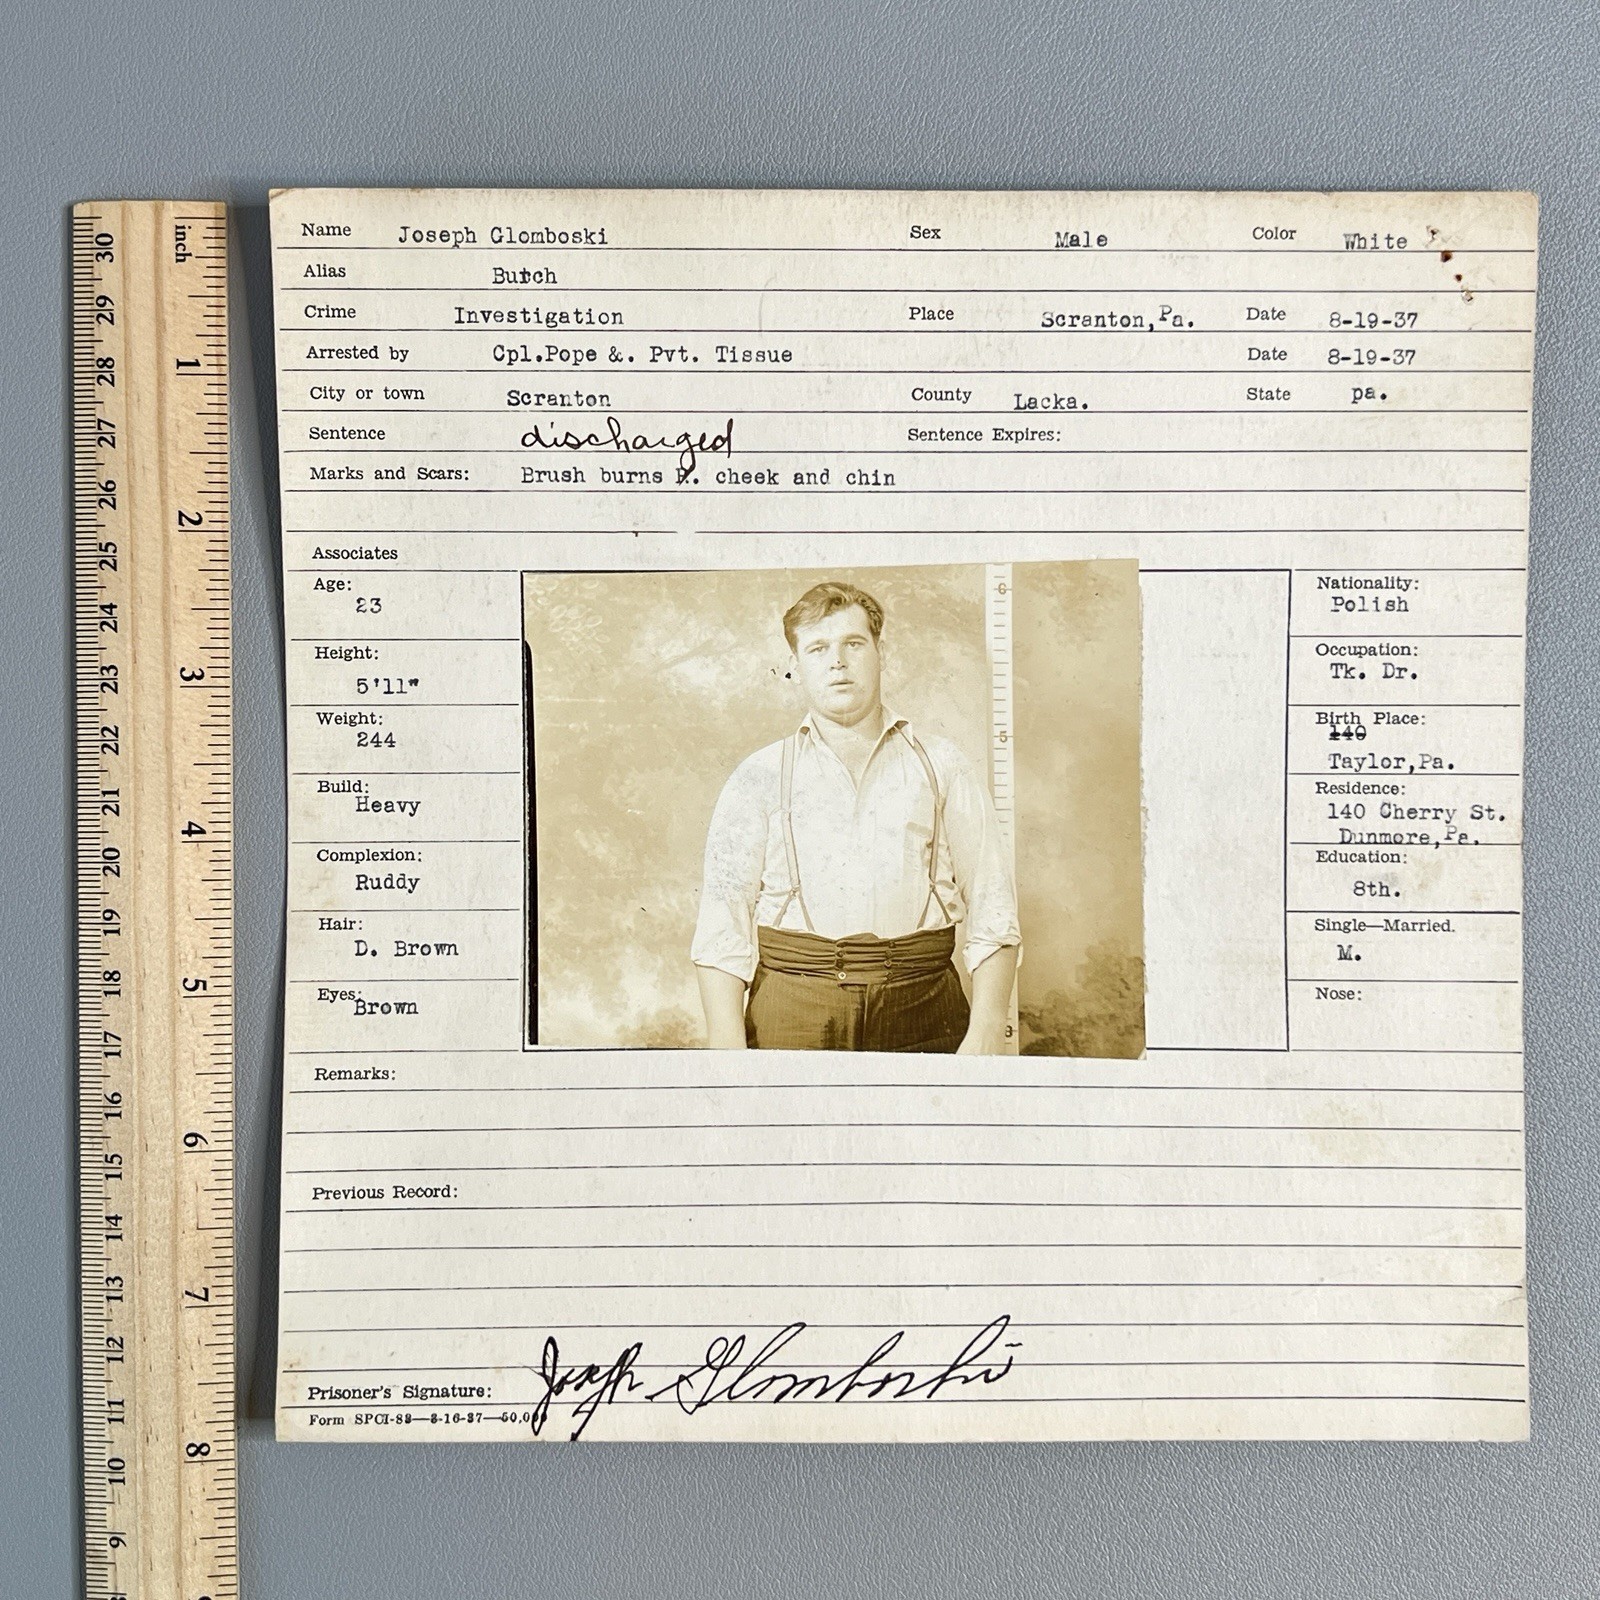 Name Joseph Glomboski Sex Male Color White
Alias Butch
Crime Investigation Place Scranton,Pa. Date 8-19-37
Arrested by Cpl.Pope &. Pvt. Tissue Date 8-19-37
City or town Scranton County Lacka. State pa.
Sentence discharged Sentence Expires:
Marks and Scars: Brush burns R. cheek and chin
Associates
Age:
23
Height:
5'11"
Weight:
244
Build:
Heavy
Complexion:
Ruddy
Hair:
D. Brown
Eyes:
Brown
6
5
Nationality:
Polish
Occupation:
Tk. Dr.
Birth Place:
140
Taylor,Pa.
Residence:
140 Cherry St.
Dunmore,Pa.
Education:
8th.
Single—Married.
M.
Nose:
Remarks:
Previous Record:
Prisoner's Signature: Joseph Glomboski
Form
inch
1
2
3
4
5
6
7
8
30
29
28
27
26
25
24
23
22
21
20
19
18
17
16
15
14
13
12
11
10
9